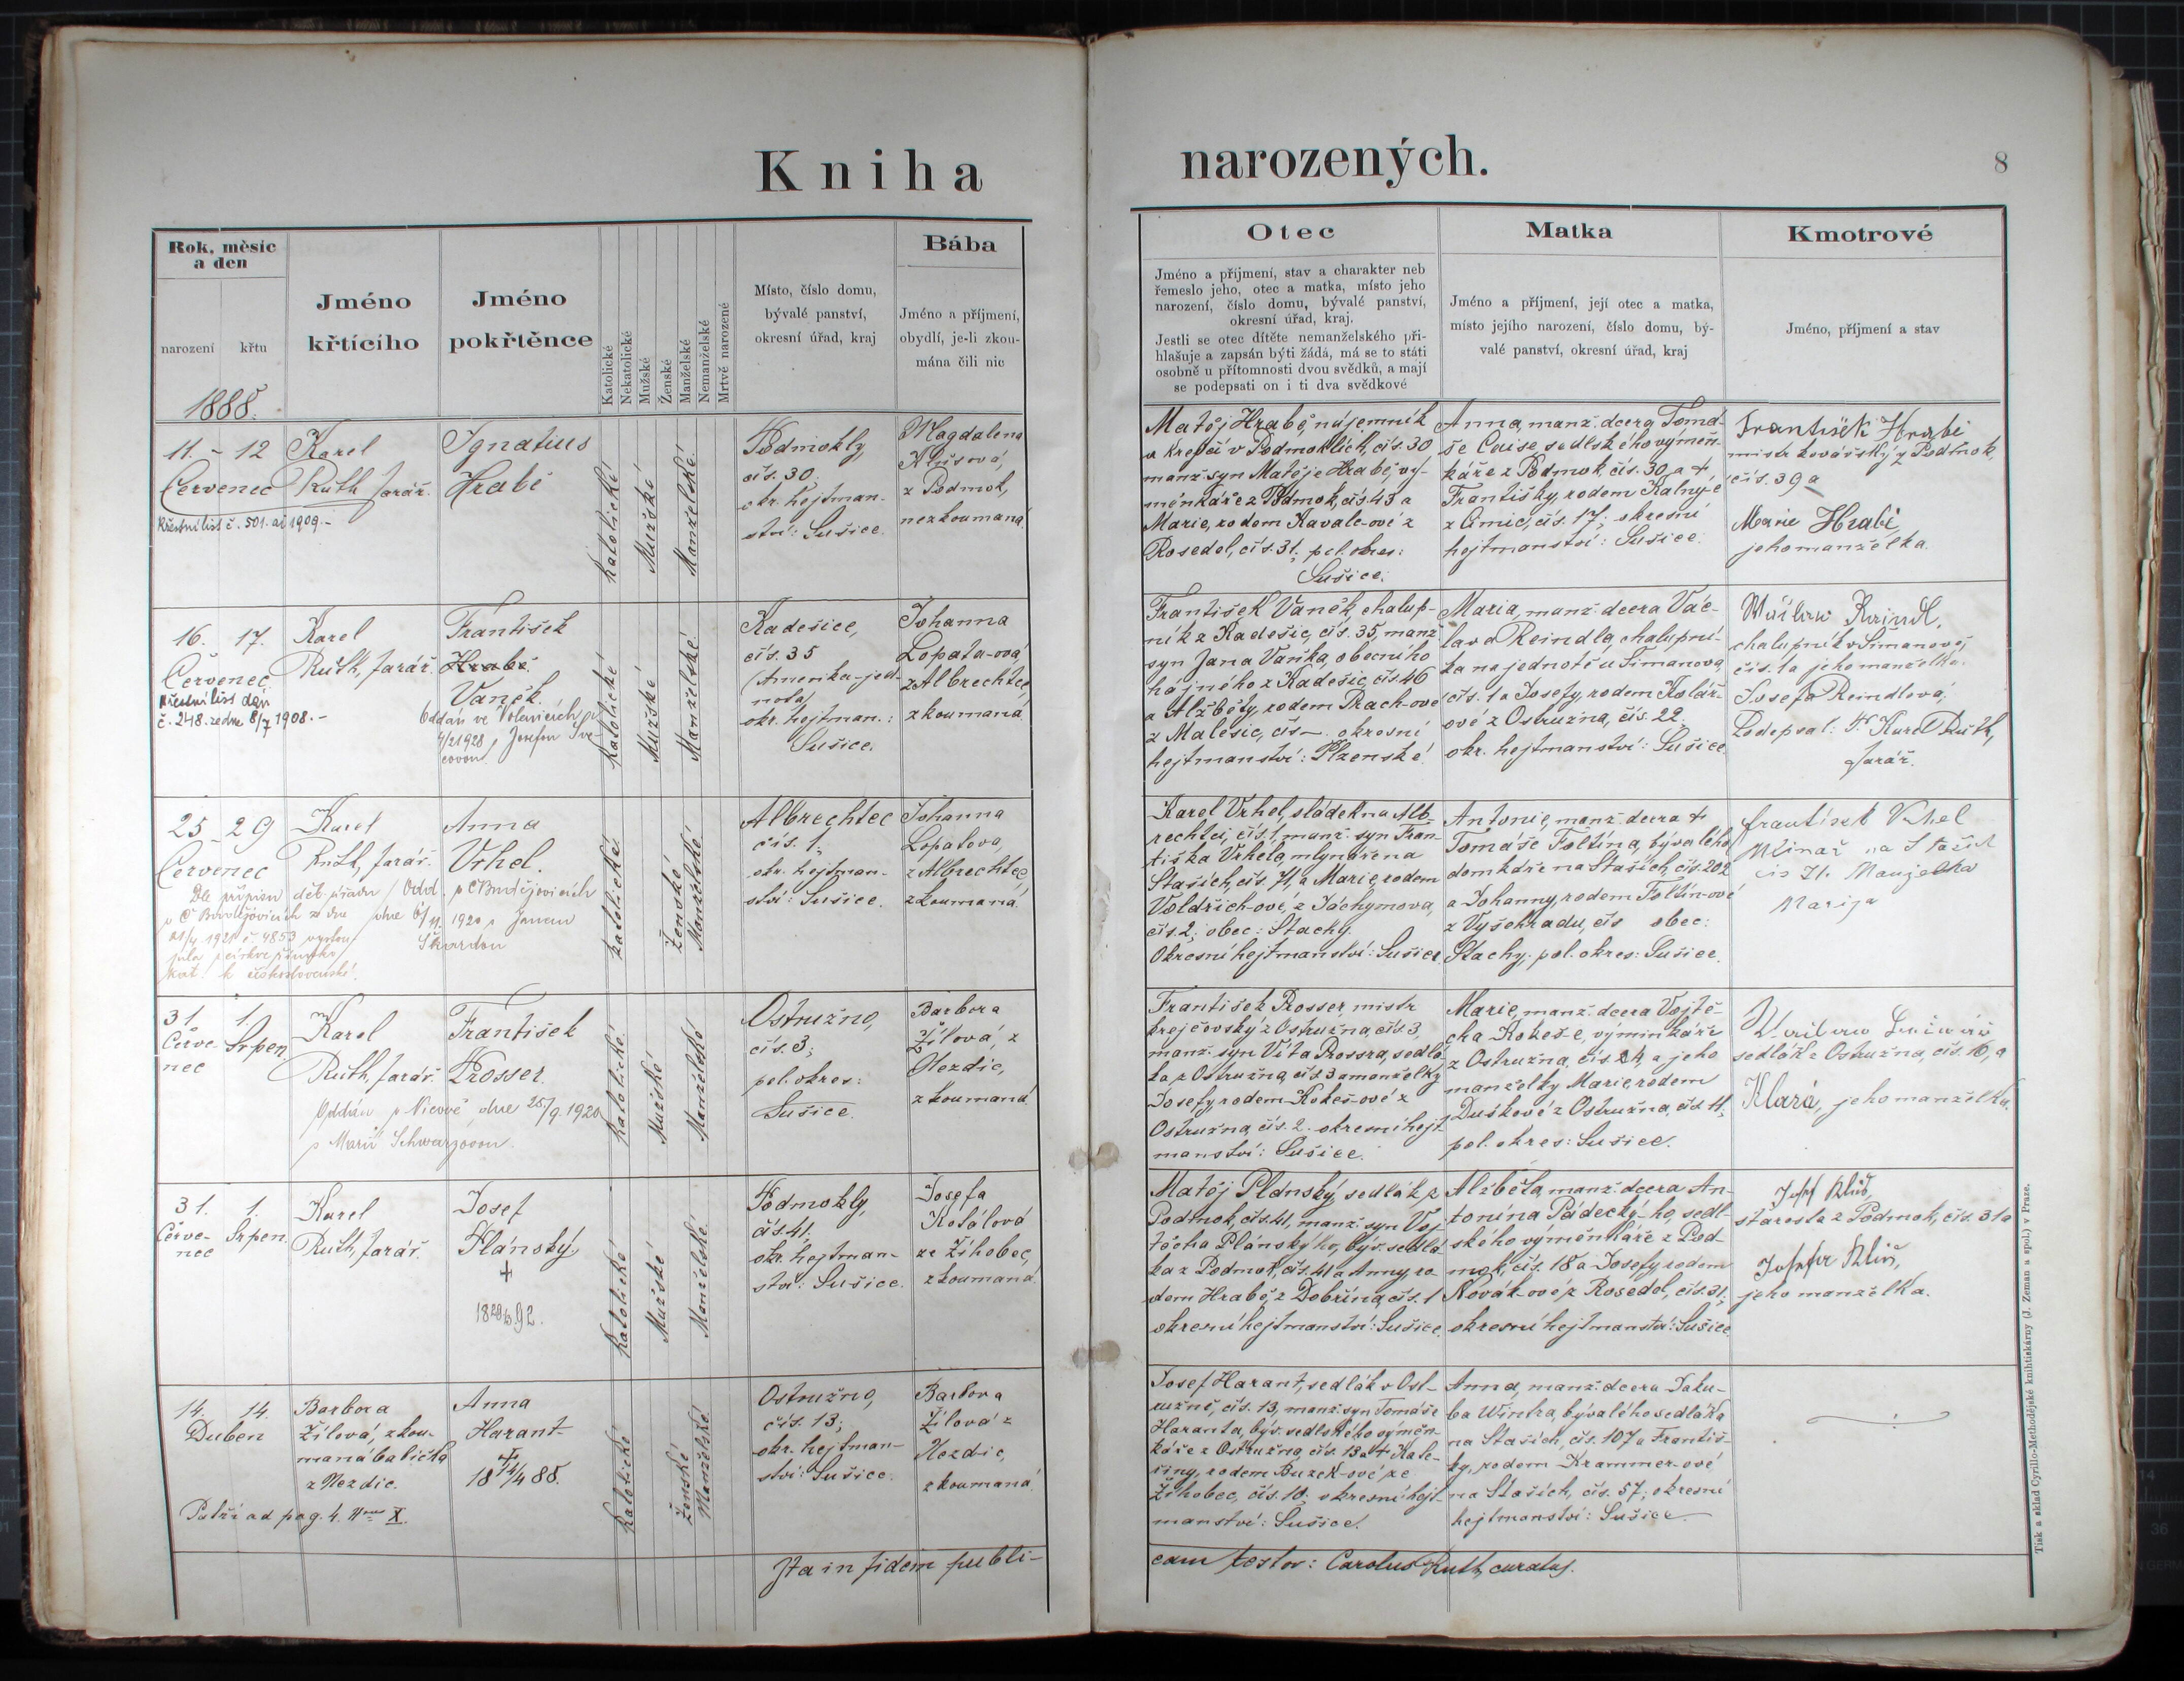 Kniha narozených.
8
Rok, měsíc
a den
narození
křtu
Jméno
křtícího
Jméno
pokřtěnce
Katolické
Nekatolické
Mužské
Ženské
Manželské
Nemanželské
Mrtvě narozené
Místo, číslo domu,
bývalé panství,
okresní úřad, kraj
Bába
Jméno a příjmení,
obydlí, je-li zkou-
mána čili nic
Otec
Jméno a příjmení, stav a charakter neb
řemeslo jeho, otec a matka, místo jeho
narození, číslo domu, bývalé panství,
okresní úřad, kraj.
Jestli se otec dítěte nemanželského při-
hlašuje a zapsán býti žádá, má se to státi
osobně u přítomnosti dvou svědků, a mají
se podepsati on i ti dva svědkové
Matka
Jméno a příjmení, její otec a matka,
místo jejího narození, číslo domu, bý-
valé panství, okresní úřad, kraj
Kmotrové
Jméno, příjmení a stav
1888.
11. - 12
Červenec
Křestní list č. 501. ai 1909. -
Karel
Ruth, farář.
Ignatius
Hrabě
katolické
Mužské
Manželské
Podmokly,
čís. 30;
okr. hejtman-
ství: Sušice.
Magdalena
Klišová,
z Podmok,
nezkoumaná
Matěj Hrabě, nájemník
a krejčí v Podmoklích, čís. 30
manž. syn Matěje Hrabě, vý-
měnkáře z Podmok, čís. 43 a
Marie, rodem Kavale-ové z
Rosedol, čís. 31; pol. okres:
Sušice.
Anna, manž. dcera Tomá-
še sedlského výměn-
káře z Podmok, čís. 30, a +
Františky, rodem Kalný-é
čís. 17; okresní
hejtmanství: Sušice.
František Hrabě
mistr kovářský z Podmok,
čís. 39 a
Marie Hrabě,
jeho manželka.
16. 17.
Červenec
Křestní list dán
č. 248. ze dne 8/7 1908. -
Karel
Ruth, farář.
František
Hrabě
Vaněk.
Oddán ve Volenicích
4/2 1928 s Josefou
katolické
Mužské
Manželské
Kadešice,
čís. 35
(Amerika-jed-
nota)
okr. hejtman.:
Sušice.
Johanna
Lopata-ová
z Albrechtec,
zkoumaná
František Vaněk, chalup-
ník z Kadešic, čís. 35, manž.
syn Jana Vaňka, obecního
hajného z Kadešic, čís. 46
a Alžběty, rodem Prach-ové
z Malešic, čís -. okresní
hejtmanství: Plzenské.
Maria, manž. dcera Vác-
lava Reindla, chalupní-
ka na jednotě u Šimanova
čís. 1 a Josefy, rodem Kolář-
ové z Ostružna, čís. 22.
okr. hejtmanství: Sušice.
Wáclaw Raindl,
chalupník v Šimanově,
čís. 1 a jeho manželka.
Josefa Reindlová,
Podepsal: P. Karel Ruth,
farář.
25 - 29
Červenec
Karel
Ruth, farář.
Anna
Vrhel.
Dle přípisu úřadu
v Č. Budějovicích ze dne
21/4 1921 č. 4853 vystou-
pila z církve římsko
kat. k československé.
Odd. v Č. Budějovicích
dne 6/11 1920 s Janem
Škvardou
katolické
Ženské
Manželské
Albrechtec
čís. 1;
okr. hejtman-
ství: Sušice.
Johanna
Lopatova,
z Albrechtec,
zkoumaná.
Karel Vrhel, sládek na Alb-
rechtci, čís. 1, manž. syn Fran-
tiška Vrhela, mlynáře na
Staších, čís. 71, a Marie, rodem
Voldřich-ové, z Jáchymova,
čís. 2; obec: Stachy.
Okresní hejtmanství: Sušice.
Antonie, manž. dcera +
Tomáše Foltína, bývalého
domkáře na Stašich, čís. 202
a Johanny, rodem Foltín-ové
z Vyšehradu, čís obec:
Stachy; pol. okres: Sušice.
František Vrhel
Mlinář na Stašich
čís 71. Manjelka
Marija
31. 1.
Červe-
nec Srpen
Karel
Ruth, farář.
František
Prosser.
Oddán v Nicově dne 25/9. 1920
s Marií Schwarzovou.
katolické
Mužské
Manželské
Ostružno,
čís. 3;
pol. okres:
Sušice.
Barbora
Žílová, z
Nezdic,
zkoumaná.
František Prosser, mistr
krejčovský z Ostružna, čís. 3,
manž. syn Víta Prossra, sedlá-
ka z Ostružna, čís. 3 a manželky
Josefy, rodem Kokeš-ové z
Ostružna, čís. 2. okresní hejt-
manství: Sušice.
Marie, manž. dcera Vojtě-
cha Kokeš-e, výminkáře
z Ostružna, čís. 24, a jeho
manželky Marie, rodem
Duškové z Ostružna, čís. 11.
pol. okres: Sušice.
sedlák z Ostružna, čís. 16, a
Klara, jeho manželka.
31. 1.
Červe-
nec Srpen.
Karel
Ruth, farář.
Josef
Plánský,
+
92.
katolické
Mužské
Manželské
Podmokly,
čís. 41.
okr. hejtman-
ství: Sušice.
Josefa
Kotálová
ze Žíhobec,
zkoumaná.
Matěj Plánský, sedlák z
Podmok, čís. 41, manž. syn Voj-
těcha Plánský-ho, býv. sedlá-
ka z Podmok, čís. 41 a Anny, ro-
dem Hrabě, z Dobřína, čís. 1
okresní hejtmanství: Sušice.
Alžběta, manž. dcera An-
tonína Pádecký-ho, sedl-
ského výměnkáře z Pod-
mok, čís. 18 a Josefy, rodem
Novák-ové z Rosedol, čís. 31;
okresní hejtmanství: Sušice.
Josef Kliš,
starosta z Podmok, čís. 31 a
Josefa Kliš,
jeho manželka.
14. 14.
Duben
Barbora
Žílová, zkou-
maná babička
z Nezdic.
Anna
Harant
+
18 14/4 88.
Patří ad pag. 4. X.
katolické
Ženské
Manželské
Ostružno,
čís. 13;
okr. hejtman-
ství: Sušice.
Barbora
Žílová z
Nezdic,
zkoumaná.
Josef Harant, sedlák v Ost-
ružně, čís. 13, manž. syn Tomáše
Haranta, býv. sedlského výměn-
káře z Ostružna, čís. 13 a + Kate-
řiny, rodem Buzek-ové ze
Žíhobec, čís. 10; okresní hejt-
manství: Sušice.
Anna, manž. dcera Jaku-
ba Wintra, bývalého sedláka
na Stašich, čís. 107 a Františ-
ky, rodem Krammer-ové
na Stašich, čís. 57; okresní
hejtmanství: Sušice.
Ita in fidem publi-
cam testor: Carolus Ruth, curatus.
Tisk a sklad Cyrillo-Methodějské knihtiskárny (J. Zeman a spol.) v Praze.